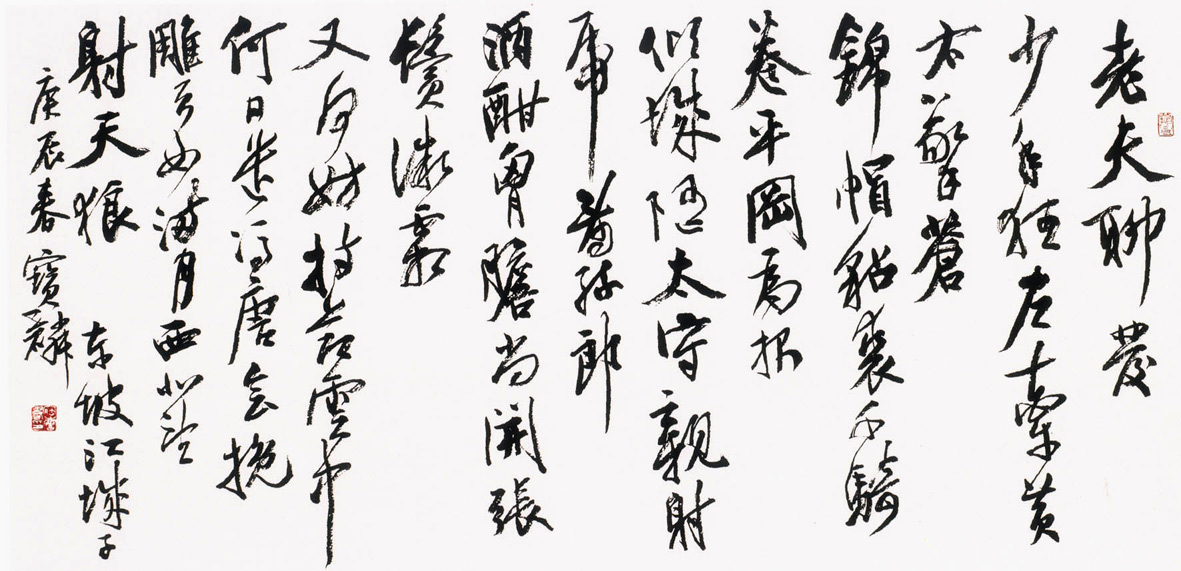 老夫聊發
少年狂左牽黄
右擎蒼
錦帽貂裘千騎
卷平岡為報
傾城随太守親射
虎看孫郎
酒酣胸膽尚開張
鬢微霜
又何妨持節雲中
何日遣馮唐會挽
雕弓如满月西北望
射天狼 东坡江城子
庚辰春寶麟